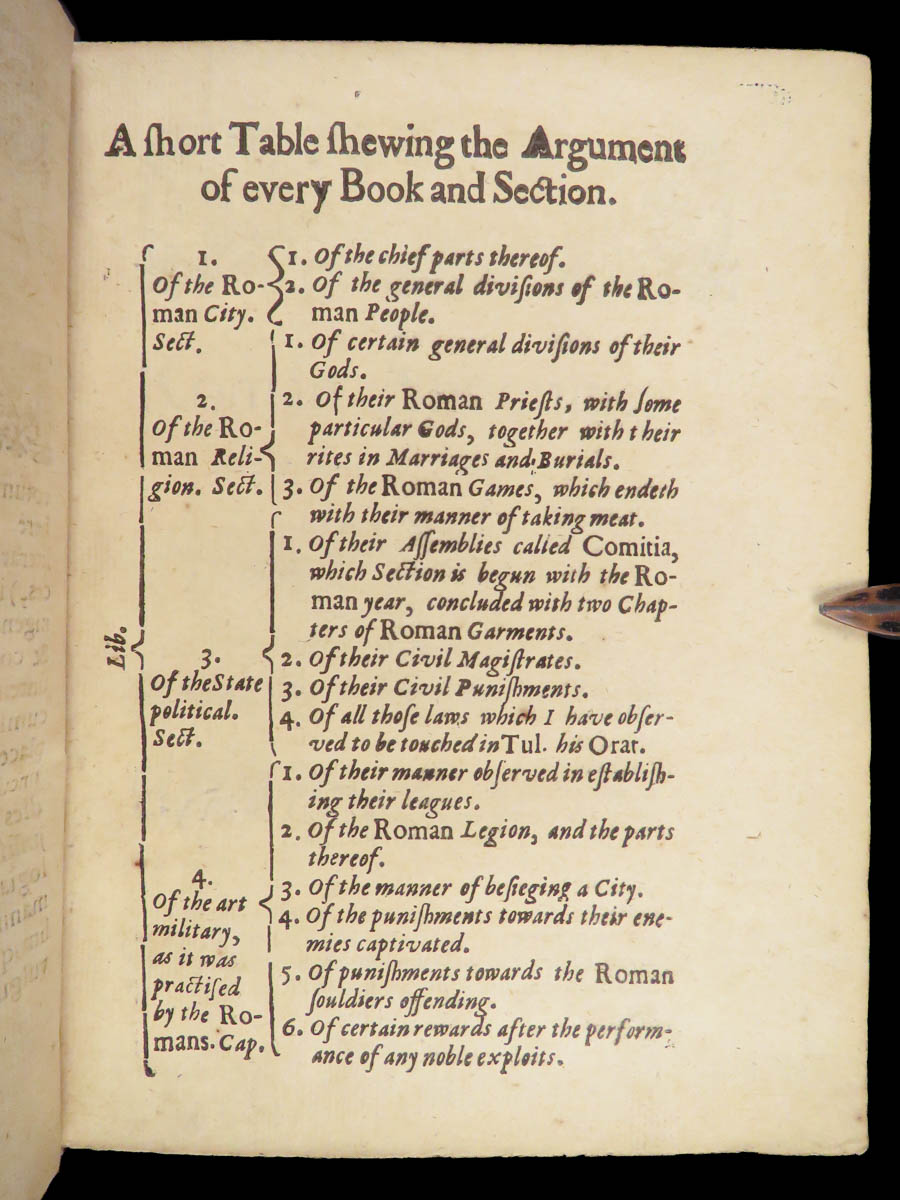 A ſhort Table ſhewing the Argument
of every Book and Section.
Lib.
1.
Of the Ro-
man City.
Sect.
1. Of the chief parts thereof.
2. Of the general diviſions of the Ro-
man People.
2.
Of the Ro-
man Reli-
gion. Sect.
1. Of certain general diviſions of their
Gods.
2. Of their Roman Prieſts, with ſome
particular Gods, together with their
rites in Marriages and Burials.
3. Of the Roman Games, which endeth
with their manner of taking meat.
3.
Of the State
political.
Sect.
1. Of their Aſſemblies called Comitia,
which Section is begun with the Ro-
man year, concluded with two Chap-
ters of Roman Garments.
2. Of their Civil Magiſtrates.
3. Of their Civil Puniſhments.
4. Of all thoſe laws which I have obſer-
ved to be touched in Tul. his Orat.
4.
Of the art
military,
as it was
practiſed
by the Ro-
mans. Cap.
1. Of their manner obſerved in eſtabliſh-
ing their leagues.
2. Of the Roman Legion, and the parts
thereof.
3. Of the manner of beſieging a City.
4. Of the puniſhments towards their ene-
mies captivated.
5. Of puniſhments towards the Roman
ſouldiers offending.
6. Of certain rewards after the perform-
ance of any noble exploits.